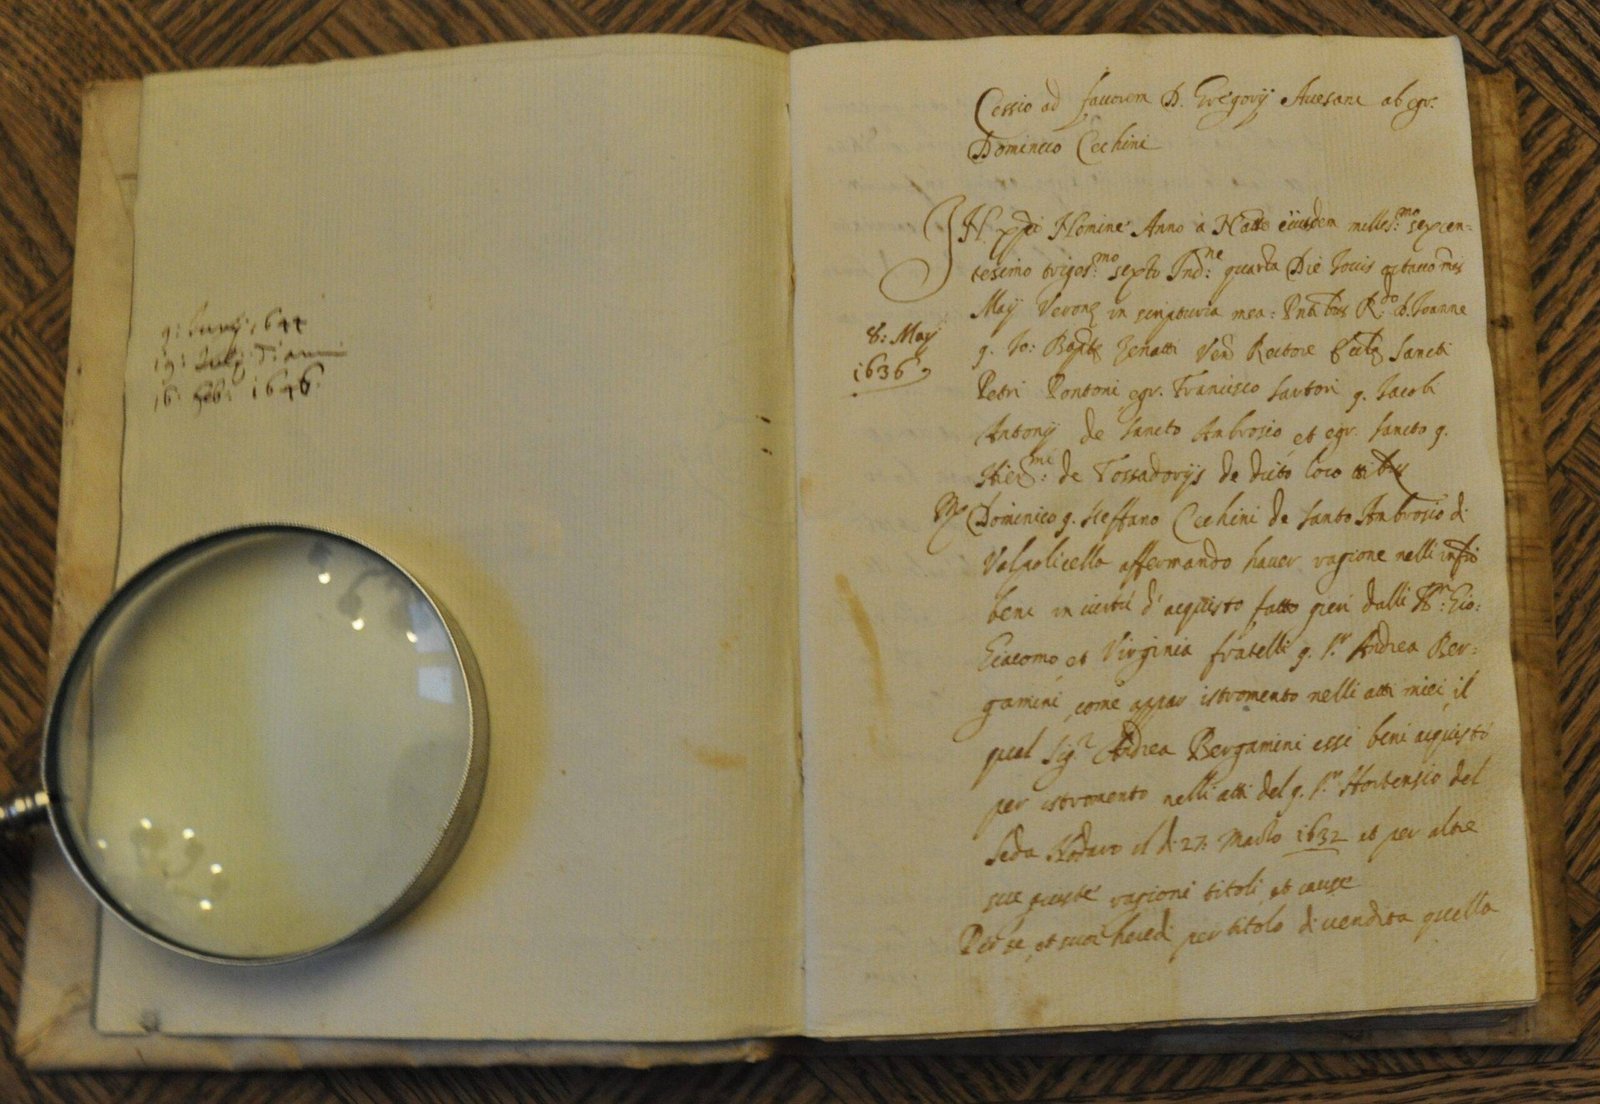 9: 1644
19:
16: Feb: 1646
Cessio ad fauorem D. Gregorij Auesani ab egr.
Dominico Cechini
IN Xpti Nomine Anno à Natte eiusdem milles:mo sexcen=
tesimo trigos:mo sexto Ind:ne quarta Die Jouis octauo mens
May Veronę in scriptoria mea: Pntibus R:do D. Joanne
8: May
1636
q. Jo: Baptę Zenatti Vend Rectore Ecclę Sancti
Petri Pontoni egr. Francisco Sartori q. Jacobi
Antonij de Sancto Ambrosio et egr. Sancto q.
de Tossadorijs de dicto loco
Domenico q. Steffano Cechini de Santo Ambrosio di
Valpolicella affermando hauer ragione nelli infti
beni in uertù d'acquisto fatto pieri dalli Gio:
Giacomo et Virginia fratelli q. Sr Andrea Ber=
gamini, come appar istromento nelli atti miei, il
qual Sigr Andrea Bergamini essi beni acquistò
per istromento nelli atti del q. Sr Hortensio del
Seda Nodaro il dì 27: Marzo 1632 et per altre
sue giuste ragioni titoli, et cause
Per se, et suoi heredi per titolo di uendita quella